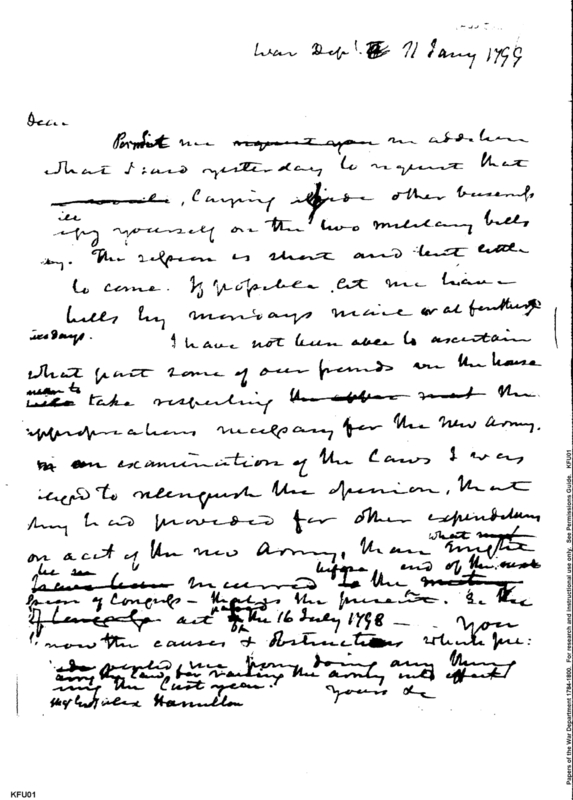 War Dept. 11 Jany 1799
Dear
Permit me request you in addition
what I said yesterday to request that
, laying aside other business
ily yourself on the two military bills
ing. The session is short and but little
to come. If possible let me have
bills by mondays maile or at furthest
esdays. I have not been able to ascertain
what part some of our friends in the house
mean to
take respecting the
appropriations necessary for the new Army.
an examination of the Laws I was
iged to relinquish the opinion, that
they had provided for other expenditures
on acct of the new Army, than
what must
be
incurred before the end of the next
ssion of Congress – the present. See the
act of the 16 July 1798 – You
now the causes & obstructions which pre:
me from doing any thing
the Law, for raising the army into effect
ing the last year. Yours &c
Alex Hamilton
KFU01
Papers of the War Department 1784-1800. For research and instructional use only. See Permissions Guide. KFU01